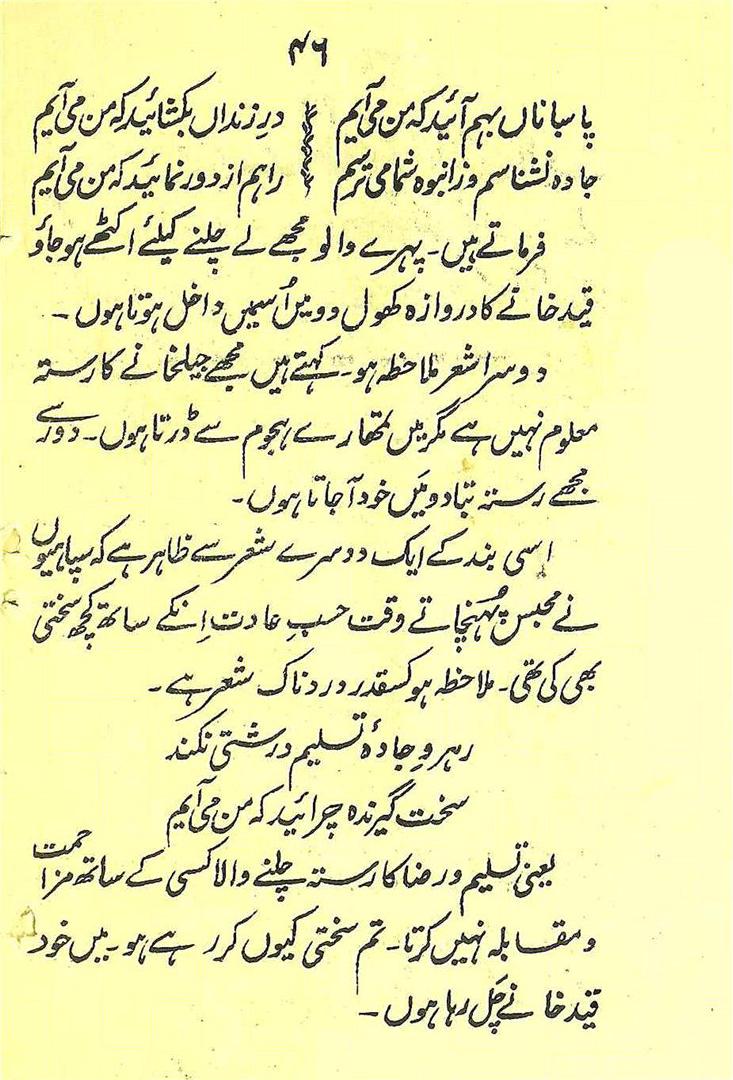 ۴۶
پاسباناں بہم آئید کہ من می آیم درِ زنداں بکشائید کہ من می آیم
جادہ نشناسم وز انبوہ شما می ترسم راہم از دور نمائید کہ من می آیم
فرماتے ہیں۔ پہرے والو مجھے لے چلنے کیلئے اکٹھے ہو جاؤ
قید خانے کا دروازہ کھول دو میں اُسمیں داخل ہوتا ہوں۔
دوسرا شعر ملاحظہ ہو۔ کہتے ہیں مجھے جیلخانے کا رستہ
معلوم نہیں ہے مگر میں تمھارے ہجوم سے ڈرتا ہوں۔ دور سے
مجھے رستہ بتا دو میَں خود آ جاتا ہوں۔
اسی بند کے ایک دوسرے شعر سے ظاہر ہے کہ سپاہیوں
نے محبس پُہنچاتے وقت حسبِ عادت اِنکے ساتھ کچھ سختی
بھی کی تھی۔ ملاحظہ ہو کسقدر دردناک شعر ہے۔
رہروِ جادۂ تسلیم درشتی نکند
سخت گیرندہ چرائید کہ من می آیم
یعنی تسلیم و رضا کا رستہ چلنے والا کسی کے ساتھ مزاحمت
و مقابلہ نہیں کرتا۔ تم سختی کیوں کر رہے ہو۔ میں خود
قید خانے چَل رہا ہوں۔